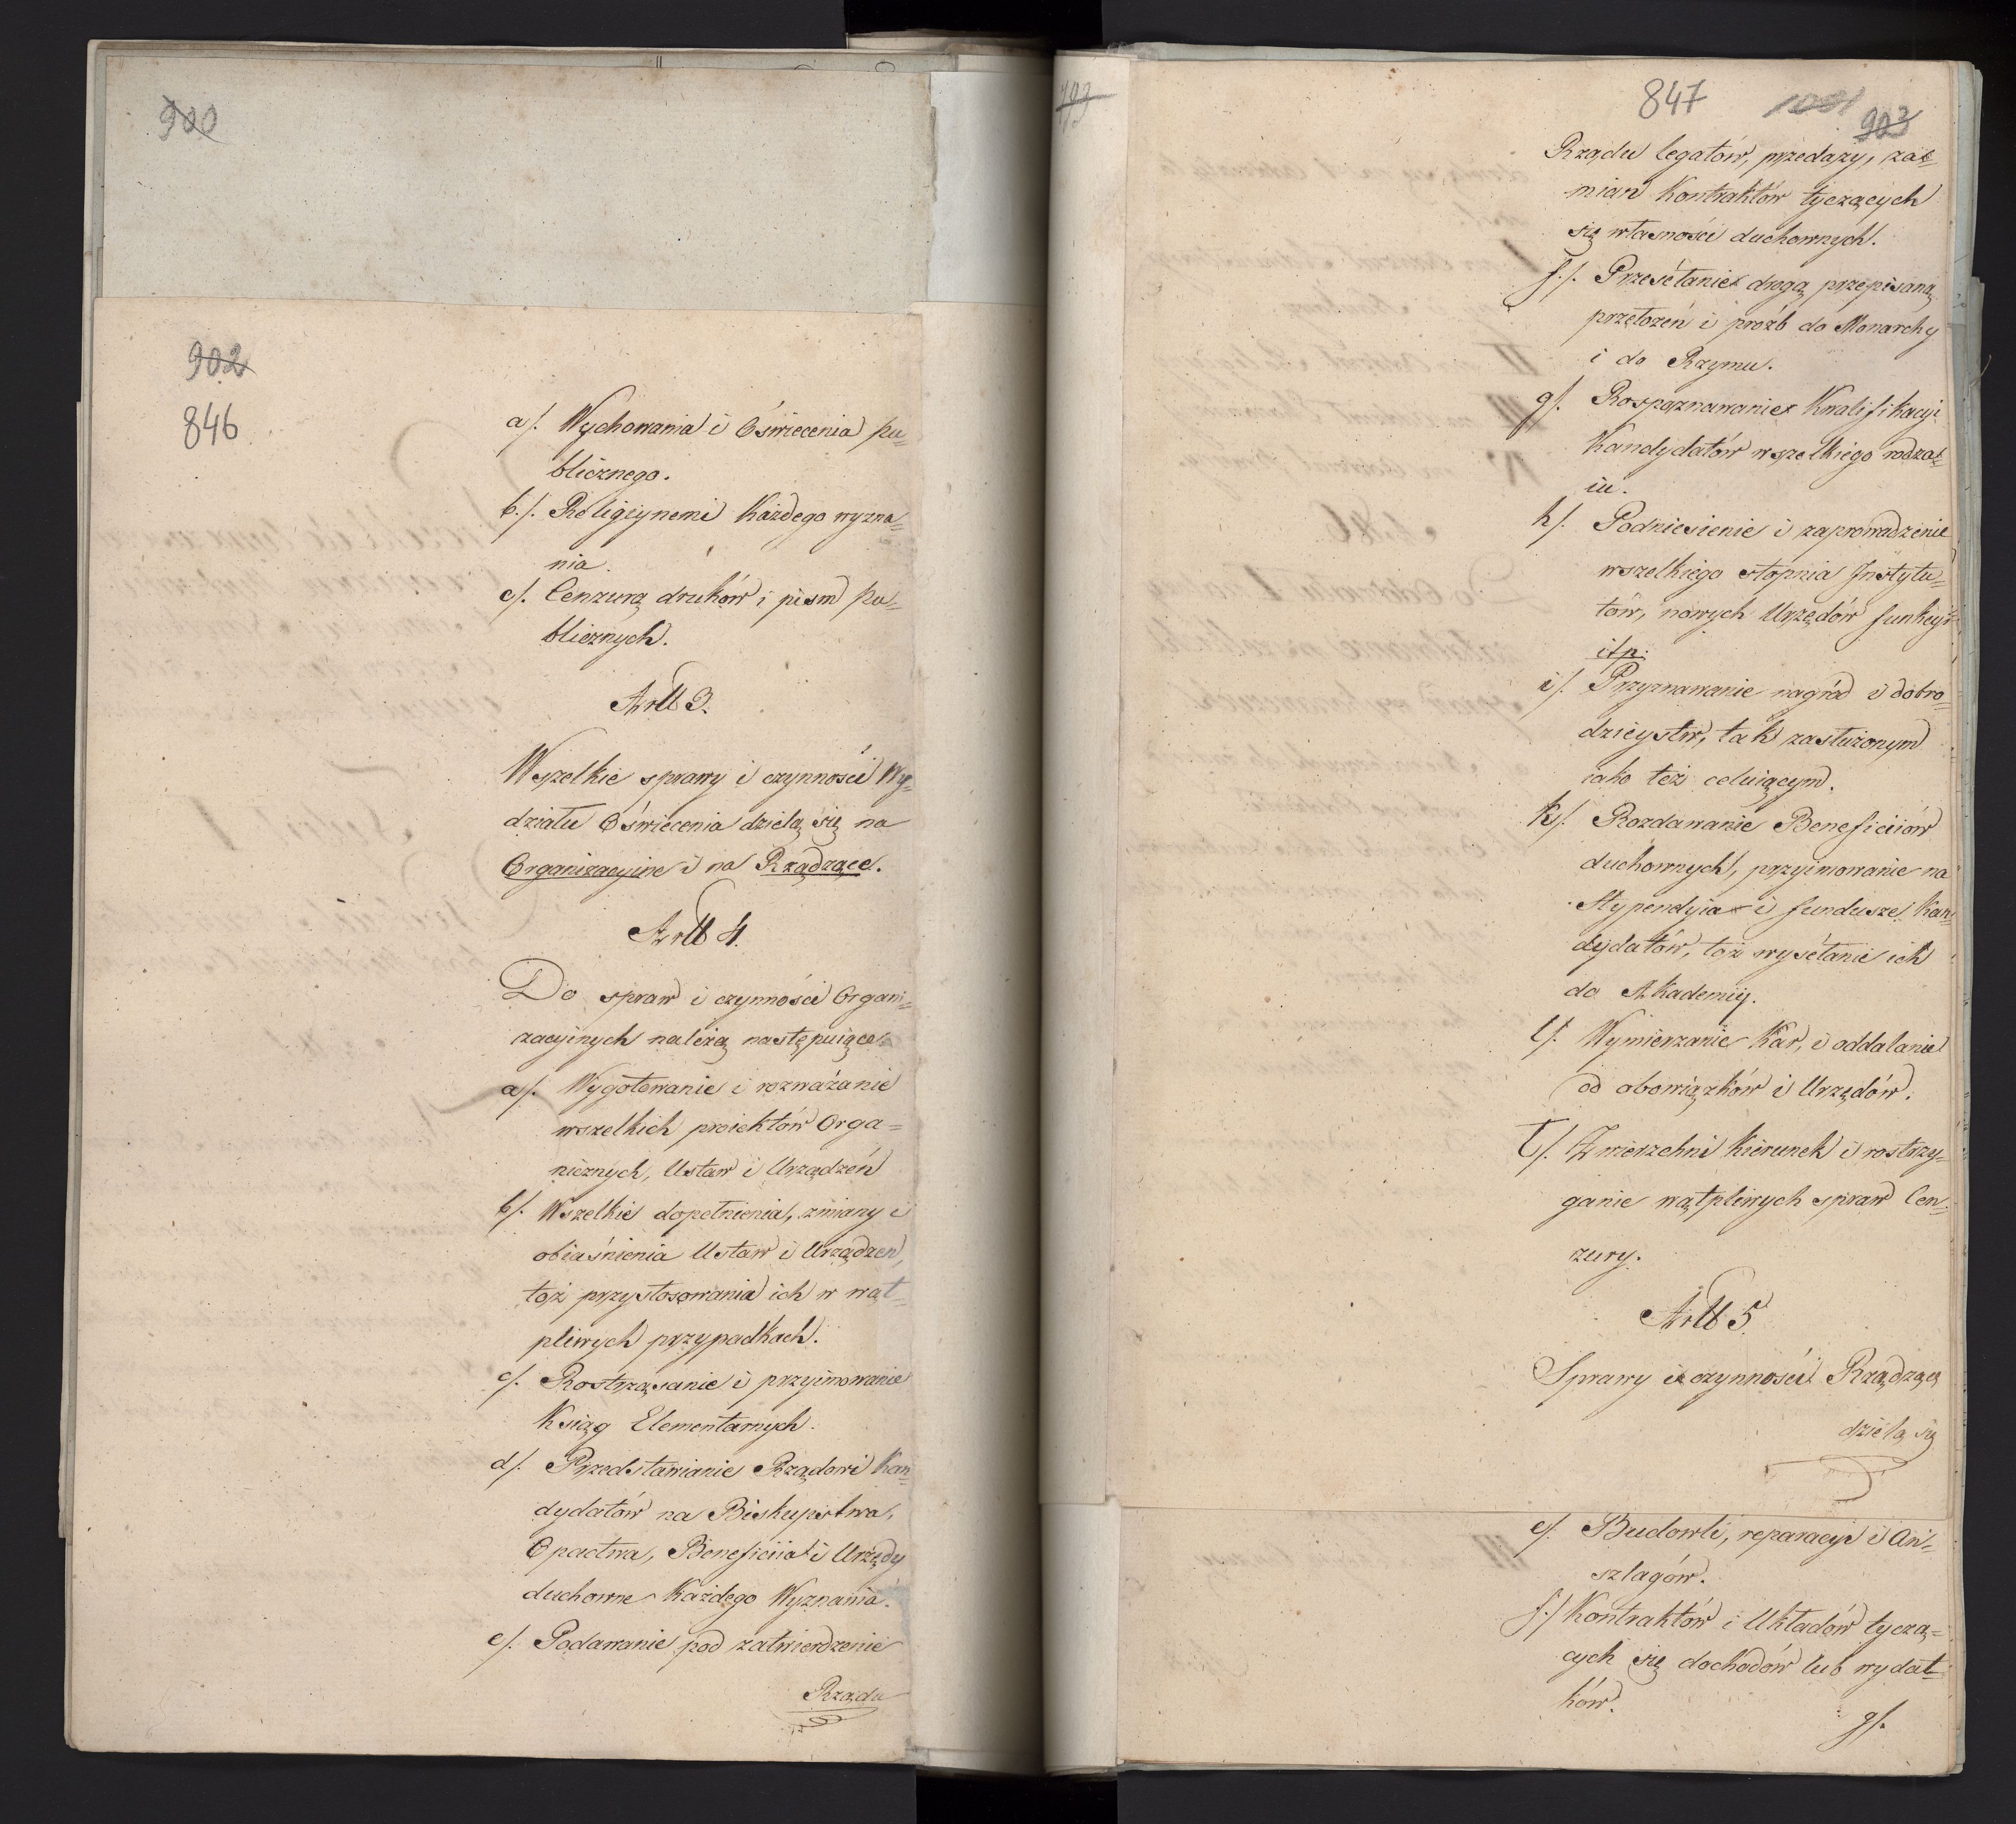 900
902
846
a/. Wychowania i Oświecenia pu=
blicznego.
b./. Religiynemi Każdego wyzna=
nia.
c/. Cenzurą druków i pism pu=
blicznych.
Artt 3.
Wszelkie sprawy i czynności Wy=
działu Oświecenia dzielą się na
Organizacyine i na Rządzące.
Artt 4.
Do spraw i czynności Organi=
zacyinych należą następuiące
a/. Wygotowanie i rozważanie
wszelkich proiektów Orga=
nicznych, Ustaw i Urządzeń
b/. Wszelkie dopełnienia, zmiany i
obiaśnienia Ustaw i Urządzeń,
toż przystosowania ich w wąt=
pliwych przypadkach.
c/. Rostrząsanie i przyimowanie
Ksiąg Elementarnych.
d/. Przedstawianie Rządowi Kan=
dydatów na Biskupstwa,
Opactwa, Beneficiia i Urzędy
duchowne Każdego Wyznania.
e/. Podawanie pod zatwierdzenie
Rządu
847
1001
903
Rządu legatów, przedaży, za=
mian Kontraktów tyczących
się własności duchownych.
f./. Przesełanie drogą przepisaną
przełożeń i proźb do Monarchy
i do Rzymu.
g/. Rospoznawanie Kwalifikacyi
Kandydatów wszelkiego rodza=
iu.
h/. Podniesienie i zaprowadzenie
wszelkiego stopnia Instytu=
tów, nowych Urzędów funkcyi
itp:
i/. Przyznawanie nagród i dobro=
dzieystw, tak zasłużonym
iako też celuiącym.
k/. Rozdawanie Beneficiiów
duchownych, przyimowanie na
Stypendyia i fundusze Kan=
dydatów, toż wysełanie ich
do Akademiy.
l/. Wymierzanie Kar, i oddalanie
od obowiązków i Urzędów.
ł/. Zwierzchni Kierunek i rostrzy=
ganie wątpliwych spraw Cen=
zury.
Artt 5
Sprawy i czynności Rządzące
dzielą się
e/. Budowli, reparacyi i An=
szlagów.
f./ Kontraktów i Układów tyczą=
cych się dochodów lub wydat=
ków.
g/.